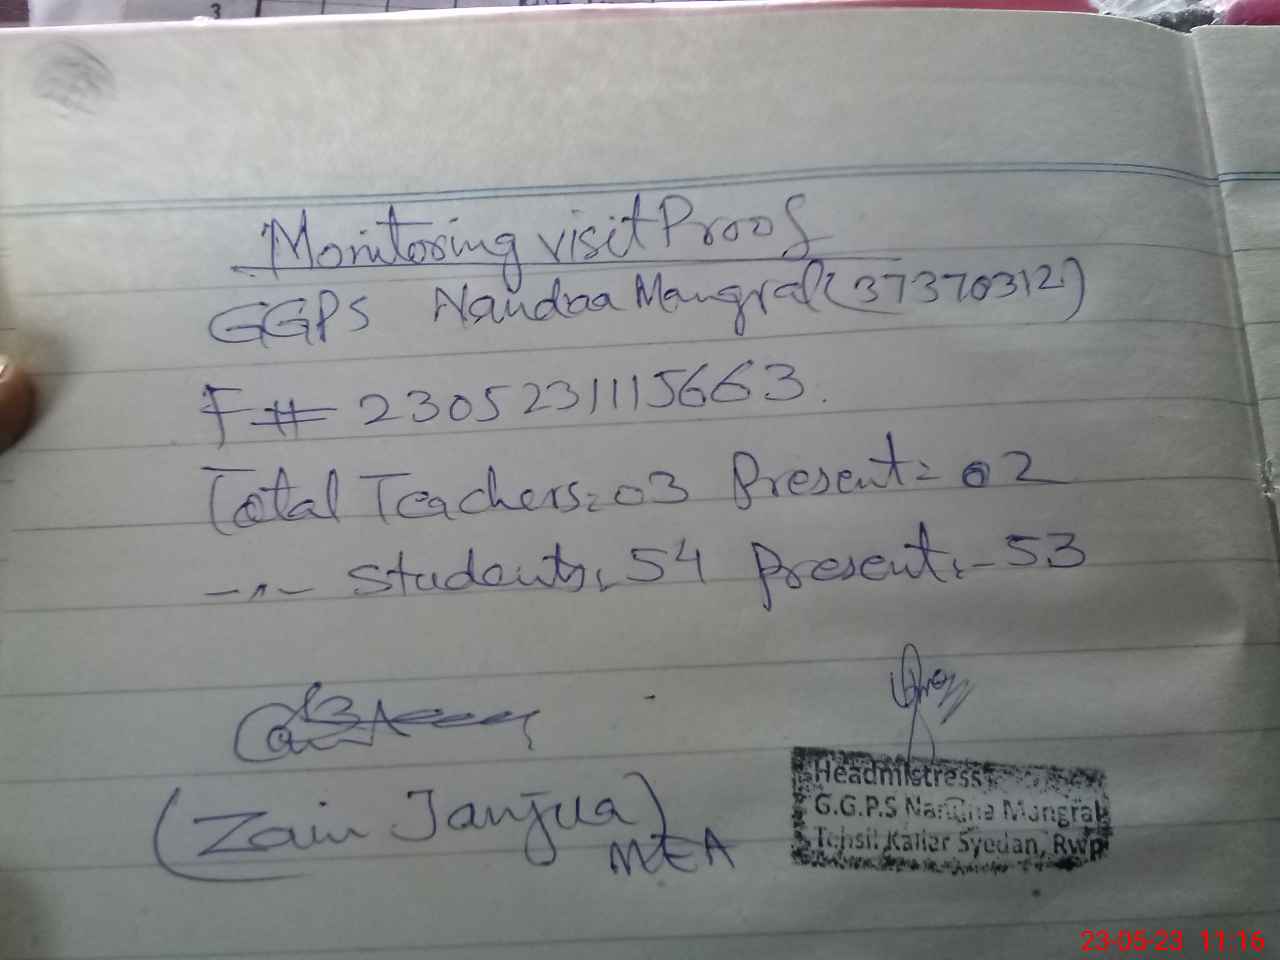 3
Monitoring visit Proof
GGPS Nandna Mangral (37370312)
F# 2305231115663.
Total Teachers: 03 Present: 02
-"- Students: 54 Present:- 53
(Zain Janjua)
MEA
Headmistress
G.G.P.S Nandna Mangral
Tehsil Kallar Syedan, Rwp
23-05-23 11:16